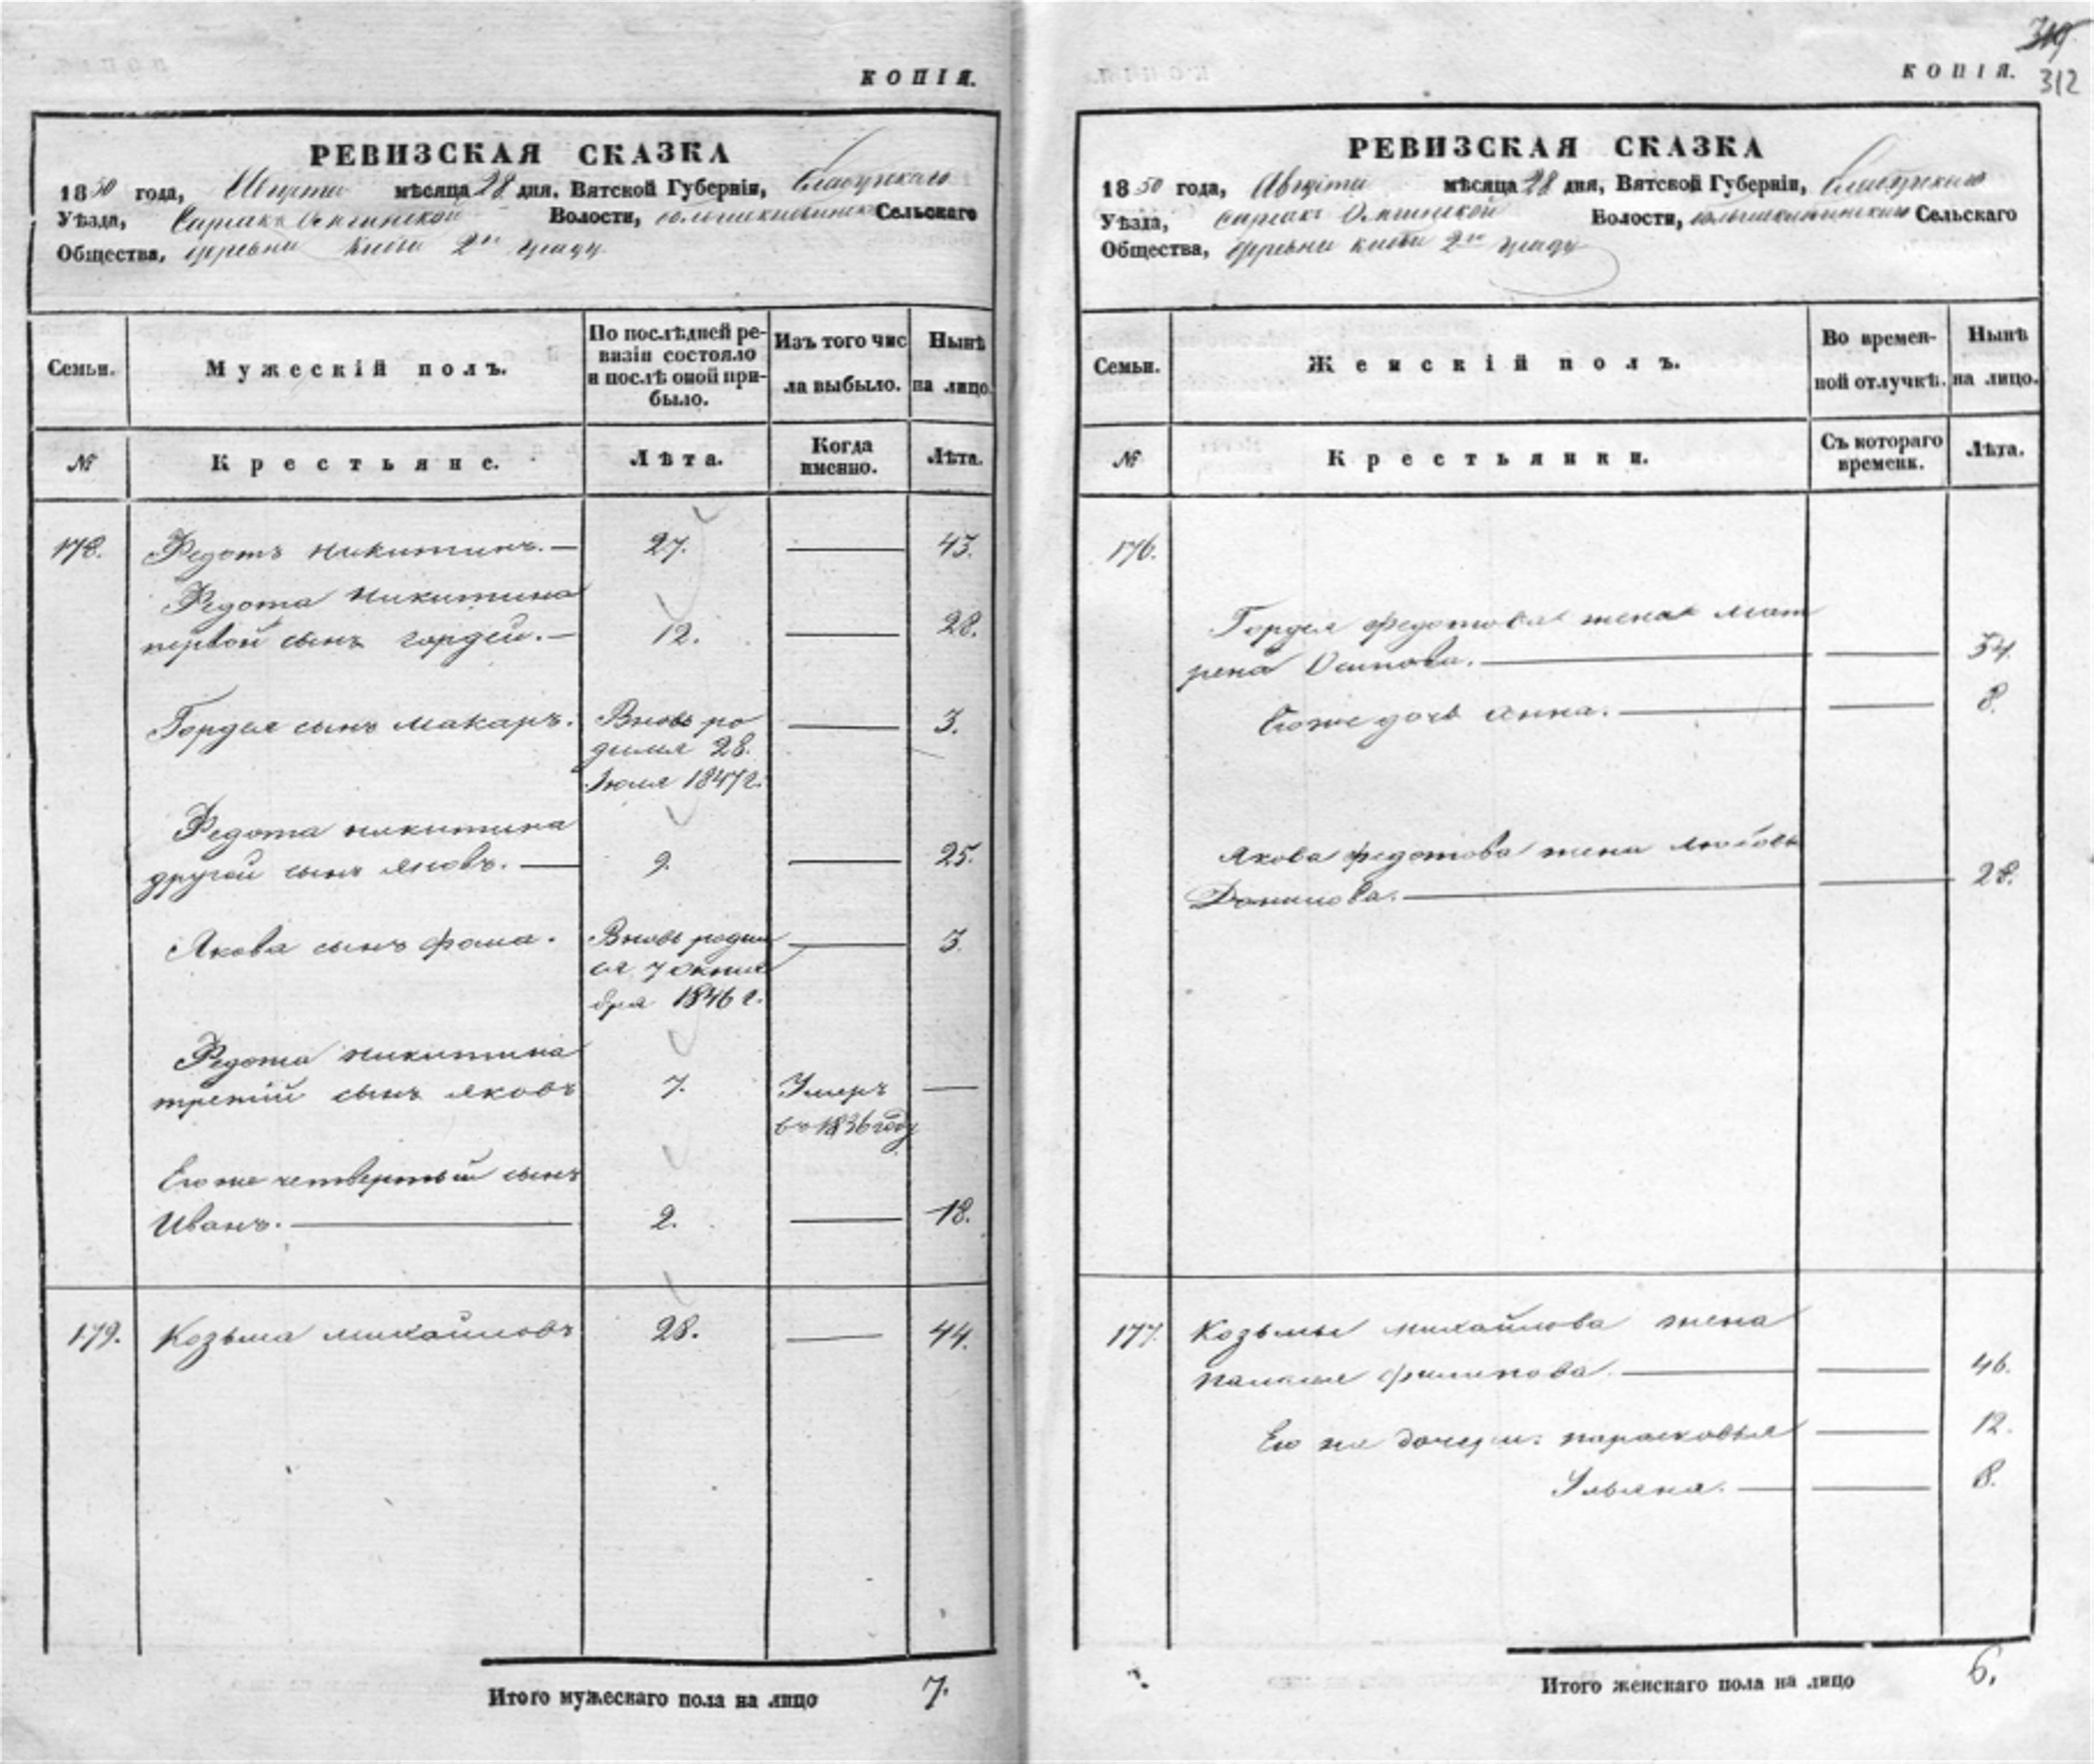 КОПІЯ.
РЕВИЗСКАЯ СКАЗКА
1850 года, Августа мѣсяца 28 дня, Вятской Губерніи, Елабужскаго
Уѣзда, Волости, Сельскаго
Общества, деревни 2го
Семьи.
Мужескій полъ.
По послѣдней ре-
визіи состояло
и послѣ оной при-
было.
Изъ того чис
ла выбыло.
Нынѣ
на лицо.
№
Крестьяне.
Лѣта.
Когда
именно.
Лѣта.
178. Федотъ Никитинъ.— 27. — 43.
Федота Никитина
первой сынъ гордей.— 12. — 28.
Гордея сынъ Макаръ. Вновь ро — 3.
дился 28.
Июля 1847 г.
Федота Никитина
другой сынъ Яковъ. — 9. — 25.
Якова сынъ фома. Вновь родил — 3.
ся 7 октя
бря 1846 г.
Федота Никитина
третий сынъ яковъ 7. Умеръ —
въ 1836 году
Его же четвертый сынъ
Иванъ. — 2. — 18.
179. Козьма михайловъ 28. — 44.
Итого мужескаго пола на лицо 7.
319
КОПІЯ. 312
РЕВИЗСКАЯ СКАЗКА
1850 года, Августа мѣсяца 28 дня, Вятской Губерніи, Елабужскаго
Уѣзда, Волости, Сельскаго
Общества, деревни 2го
Семьи.
Женскій полъ.
Во времен-
ной отлучкѣ.
Нынѣ
на лицо.
№
Крестьянки.
Съ котораго
времени.
Лѣта.
176.
Гордея федотова жена мат
рена Осипова. — — 34.
Его же дочь анна. — — 8.
Якова федотова жена любовь
Данилова. — — 28.
177. Козьмы михайлова жена
филипова — — 46.
Его же дочери: парасковья — 12.
Ульяна. — — 8.
Итого женскаго пола на лицо 6.